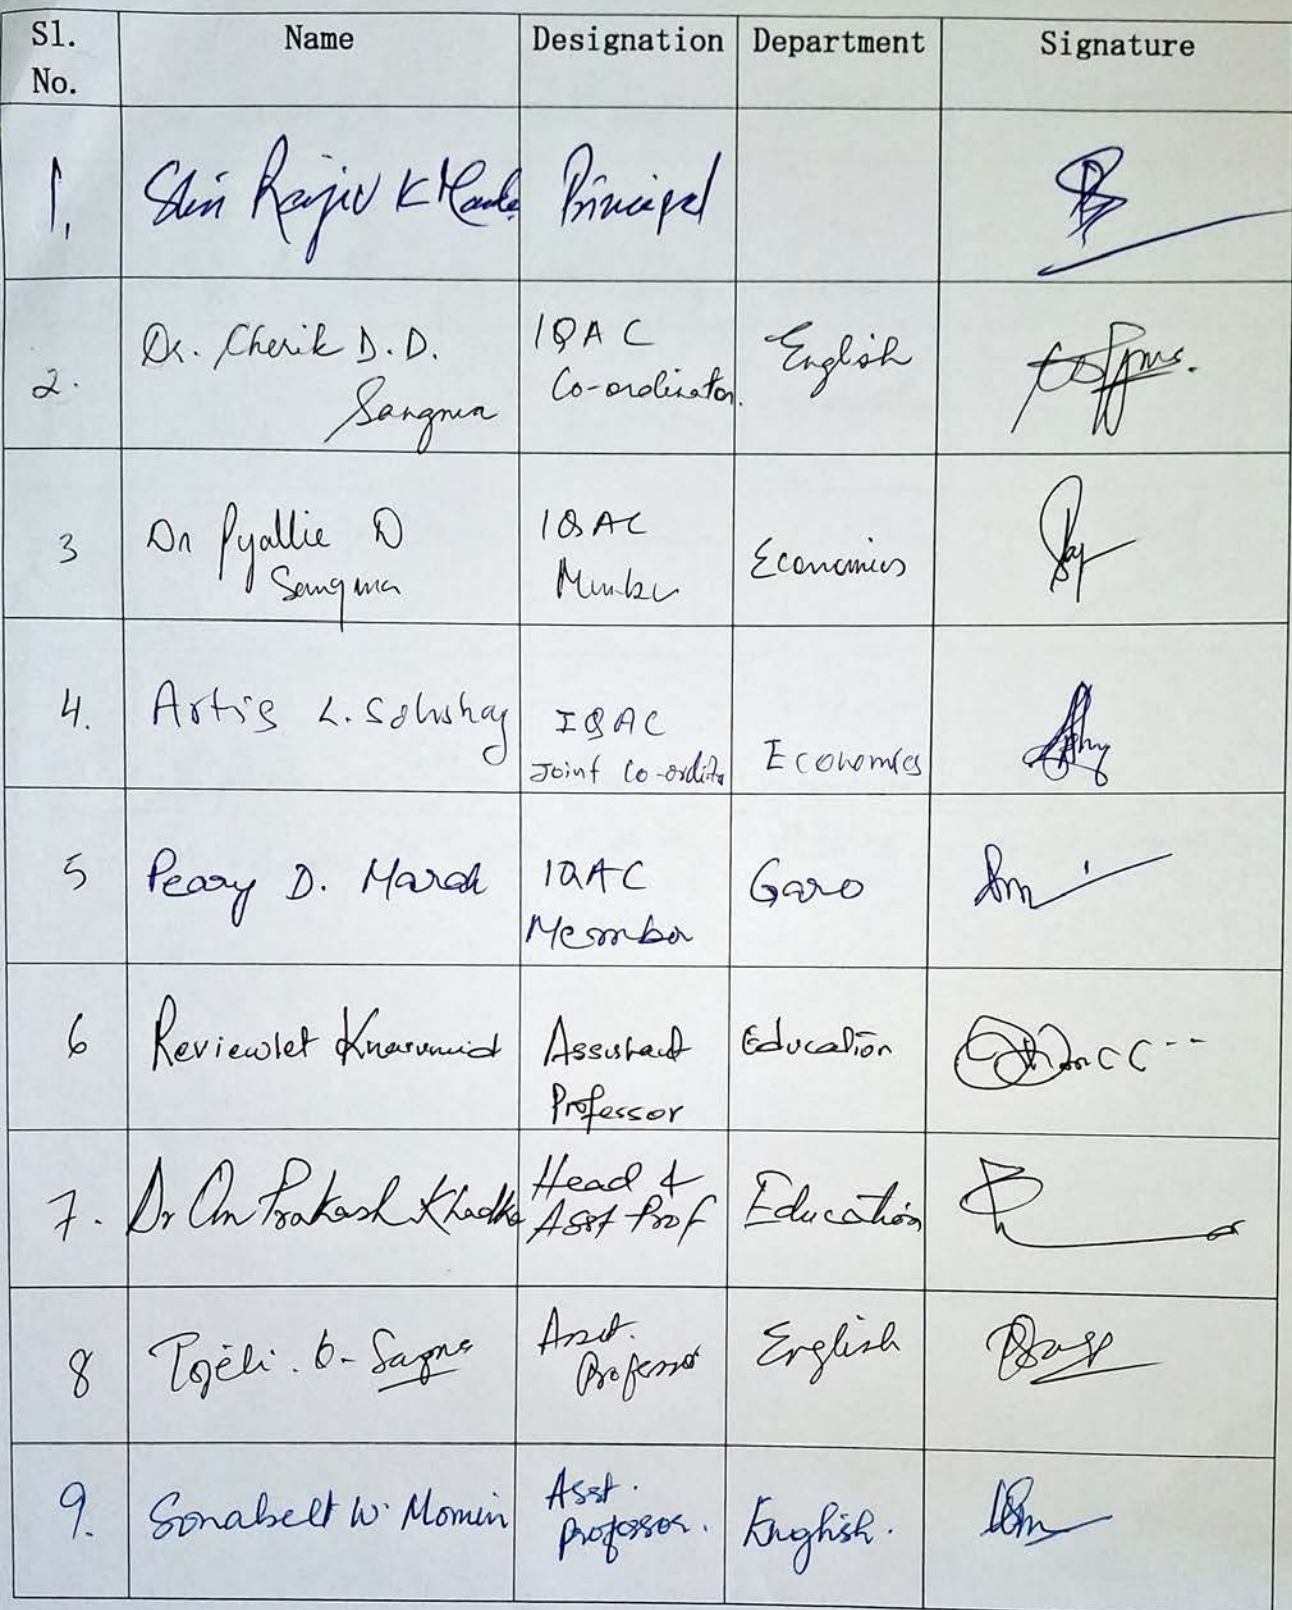 Sl. No. Name Designation Department Signature
1. Shri Rajiv K Marak Principal
2. Dr. Cherik D.D. Sangma IQAC Co-ordinator. English
3 Dr Pyallie D Sangma IQAC Member Economics
4. Artis L. Sohshay IQAC Joint Co-ordi Economics
5 Peary D. Marak IQAC Member Garo
6 Reviewlet Assistant Professor Education
7. Dr Om Prakash Khadka Head & Asst Prof Education
8 Asst. Professor English
9. Sonabelt W. Momin Asst. Professor. English.